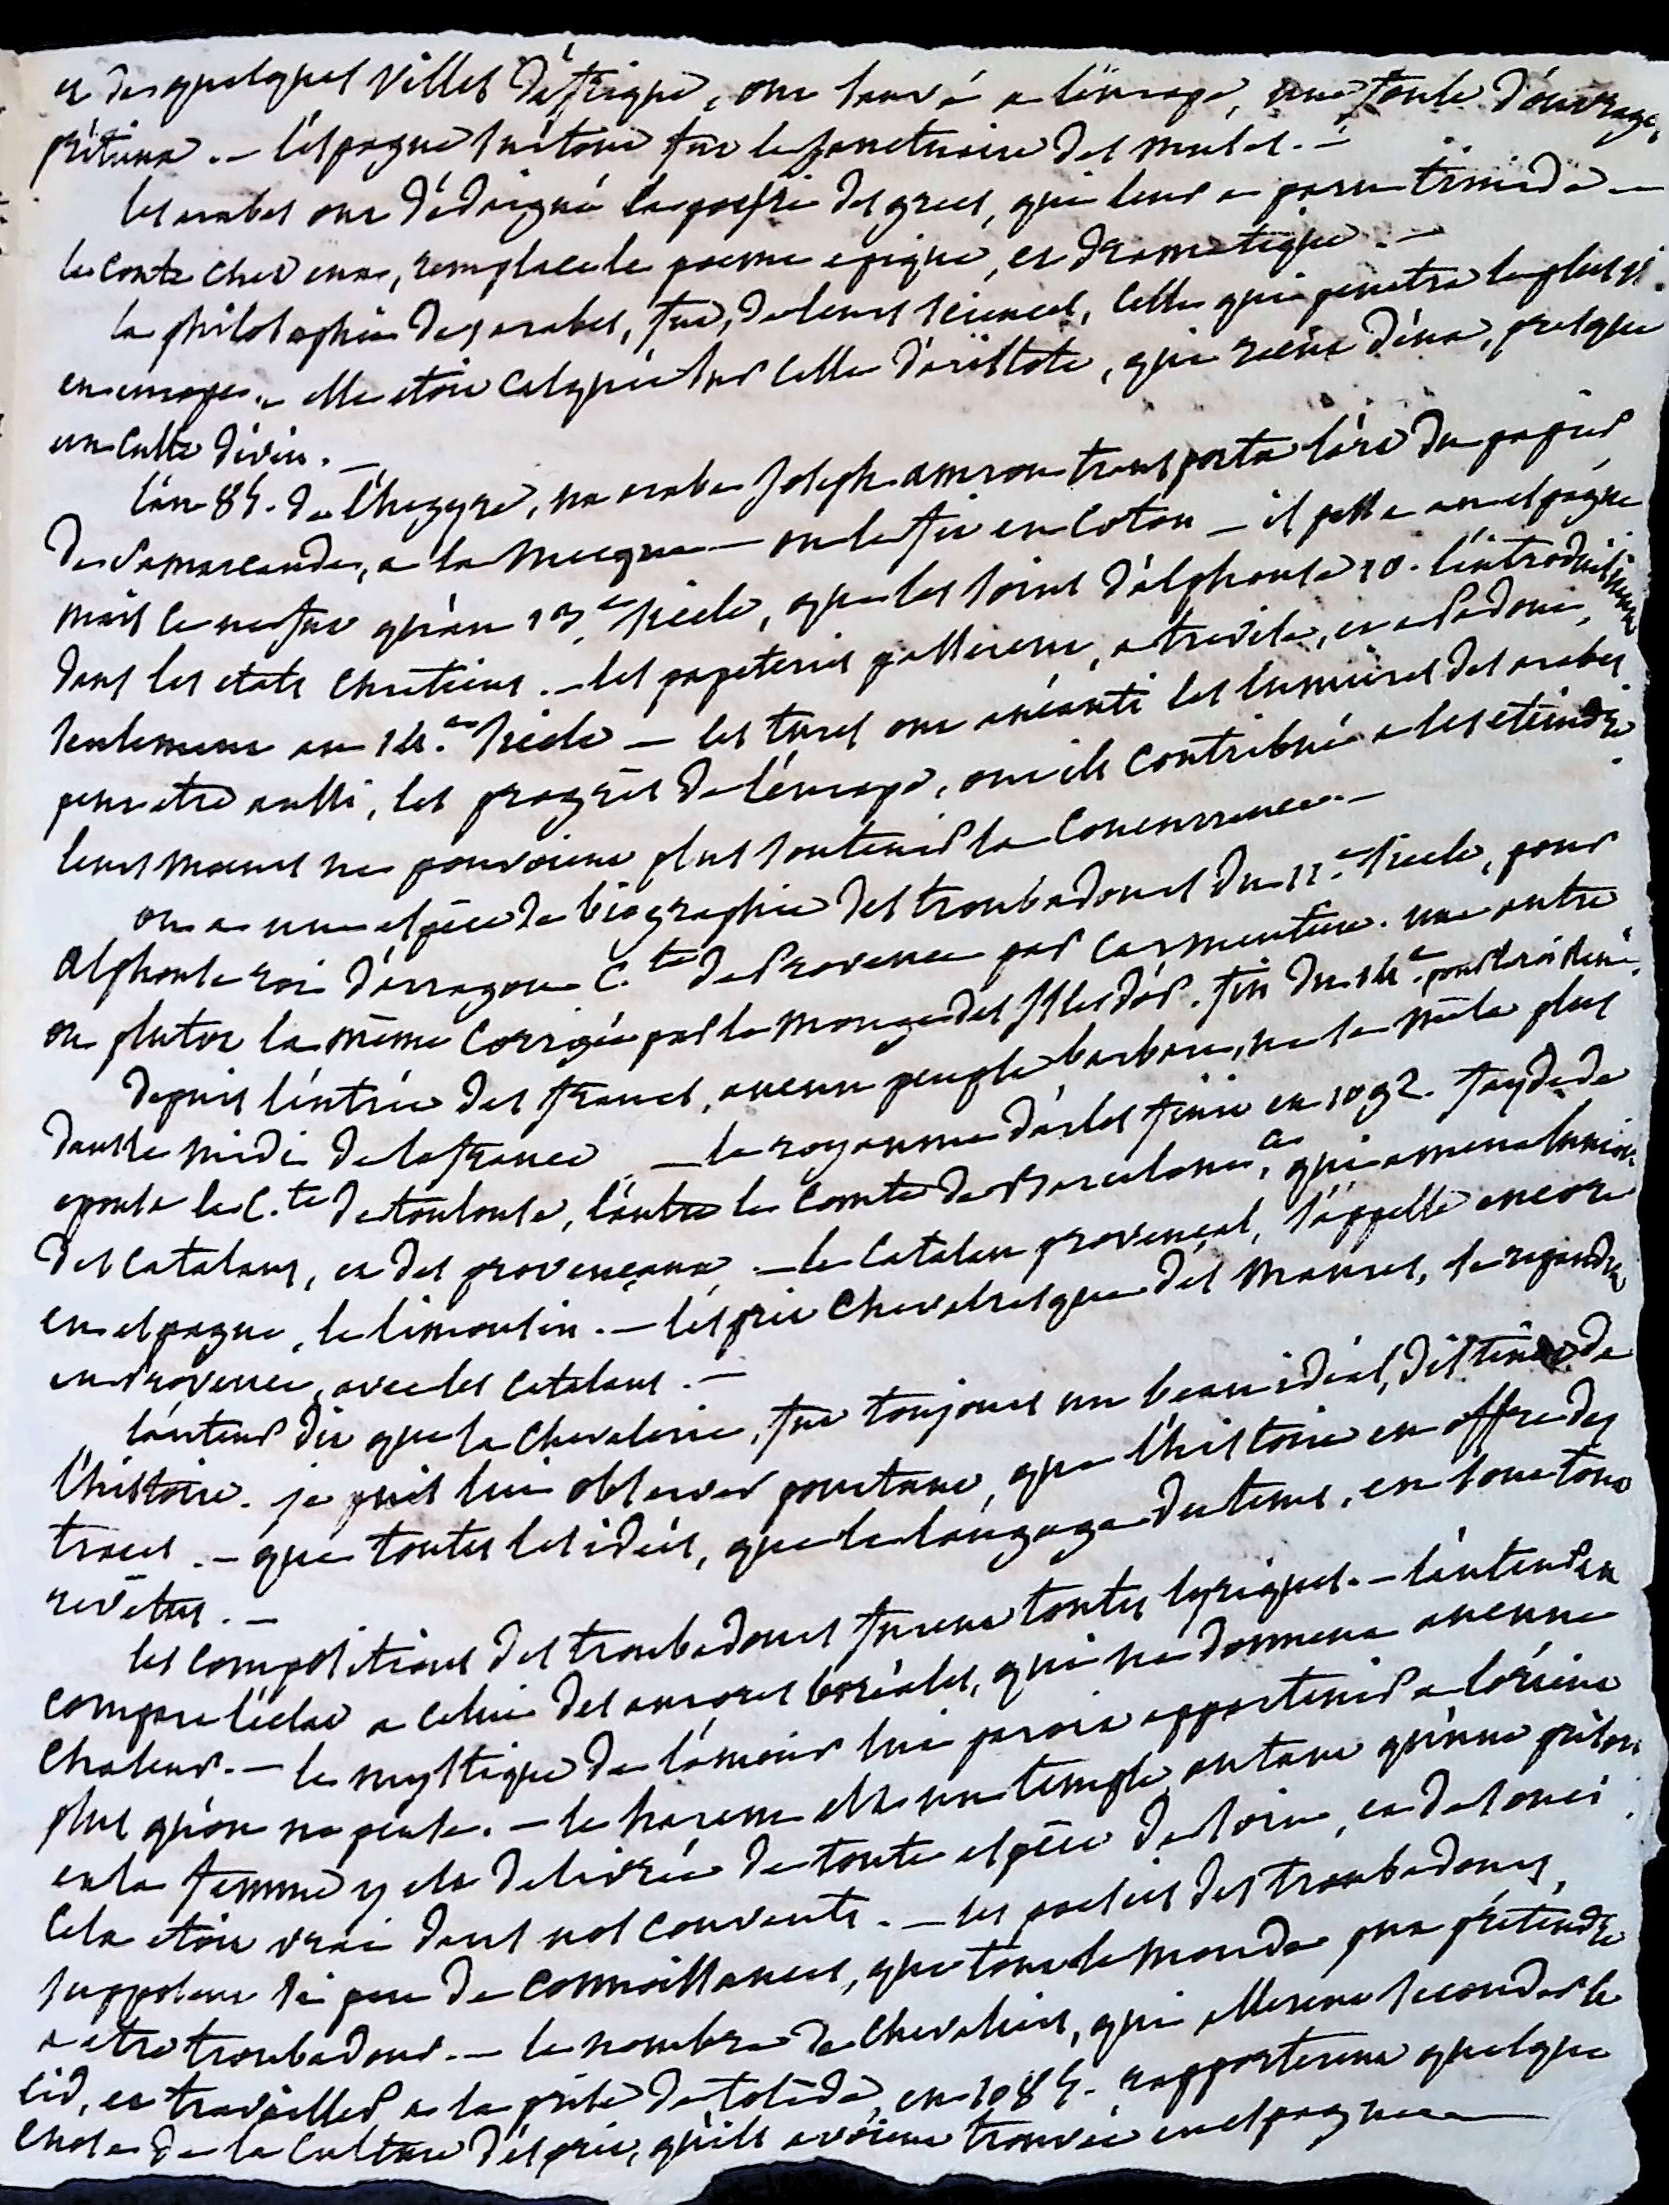 et des quelques villes d'afrique, ont sauvé a l'europe, une foule d'ouvrages
prétieux. — l'espagne surtout fut le sanctuaire des muses. —
les arabes ont dédaigné la poësie des grecs, qui leur a paru timide —
le conte chez eux, remplace le poeme epique, et dramatique. —
la philosophie des arabes, fut, de leurs sciences, celle qui penetra le plus
en europe. — elle etoit calquée sur celle d'aristote, qui reçut d'eux, presque
un culte divin. —
l'an 85. de l'hegyre, un arabe joseph amrou transporta l'art du papier
de Samarcande, a la Mecque — on le fit en coton — il passa en espagne
mais ce ne fut qu'au 13.e siecle, que les soins d'alphonse 10. l'introduisirent
dans les etats chretiens. — les papeteries passerent, a trevise, et a Padoue,
seulement au 14.e siecle — les turcs ont anéanti les lumieres des arabes
peut etre aussi, les progrès de l'europe, ont ils contribué a les eteindre.
leurs mœurs ne pouvoient plus soutenir la concurrence. —
on a une espèce de biographie des troubadours du 12.e siecle, pour
alphonse roi d'arragon C.te de Provence par Carmentiere. une autre
ou plutot la même corrigée par le monge des Isles d'or. fin du 14.e pour le roi René.
depuis l'entrée des francs, aucun peuple barbare, ne se mêla plus
dans le midi de la france — le royaume d'arles finit en 1092. faydide
epousa le C.te de toulouse, l'autre le comte de Barcelone, qui amena l'union
des catalans, et des provençaux — le catalan provencal, s'appelle encore
en espagne, le limousin. — l'esprit chevaleresque des Maures, se repandit
en Provence, avec les catalans. —
l'auteur dit que la chevalerie, fut toujours un beau idéal, distinct de
l'histoire. je puis lui observer pourtant, que l'histoire en offre des
traces. — que toutes les idées, que le langage du tems, en sont tout
revêtus. —
les compositions des troubadours furent toutes lyriques. — l'auteur en
compare l'éclat a celui des aurores boréales, qui ne donnent aucune
chaleur. — le mystique de l'amour lui paroit appartenir a l'orient
plus qu'on ne pense. — le harem est un temple autant qu'une prison
et la femme y est delivrée de toute espèce de soin, et de souci.
cela etoit vrai dans nos couvents. — les poesies des troubadours,
supposent si peu de connoissances, que tout le monde put prétendre
a etre troubadour. — le nombre de chevaliers, qui allerent seconder le
Cid, et travailler a la prise de tolède, en 1085. rapporterent quelque
chose de la culture d'esprit, qu'ils avoient trouvée en espagne —